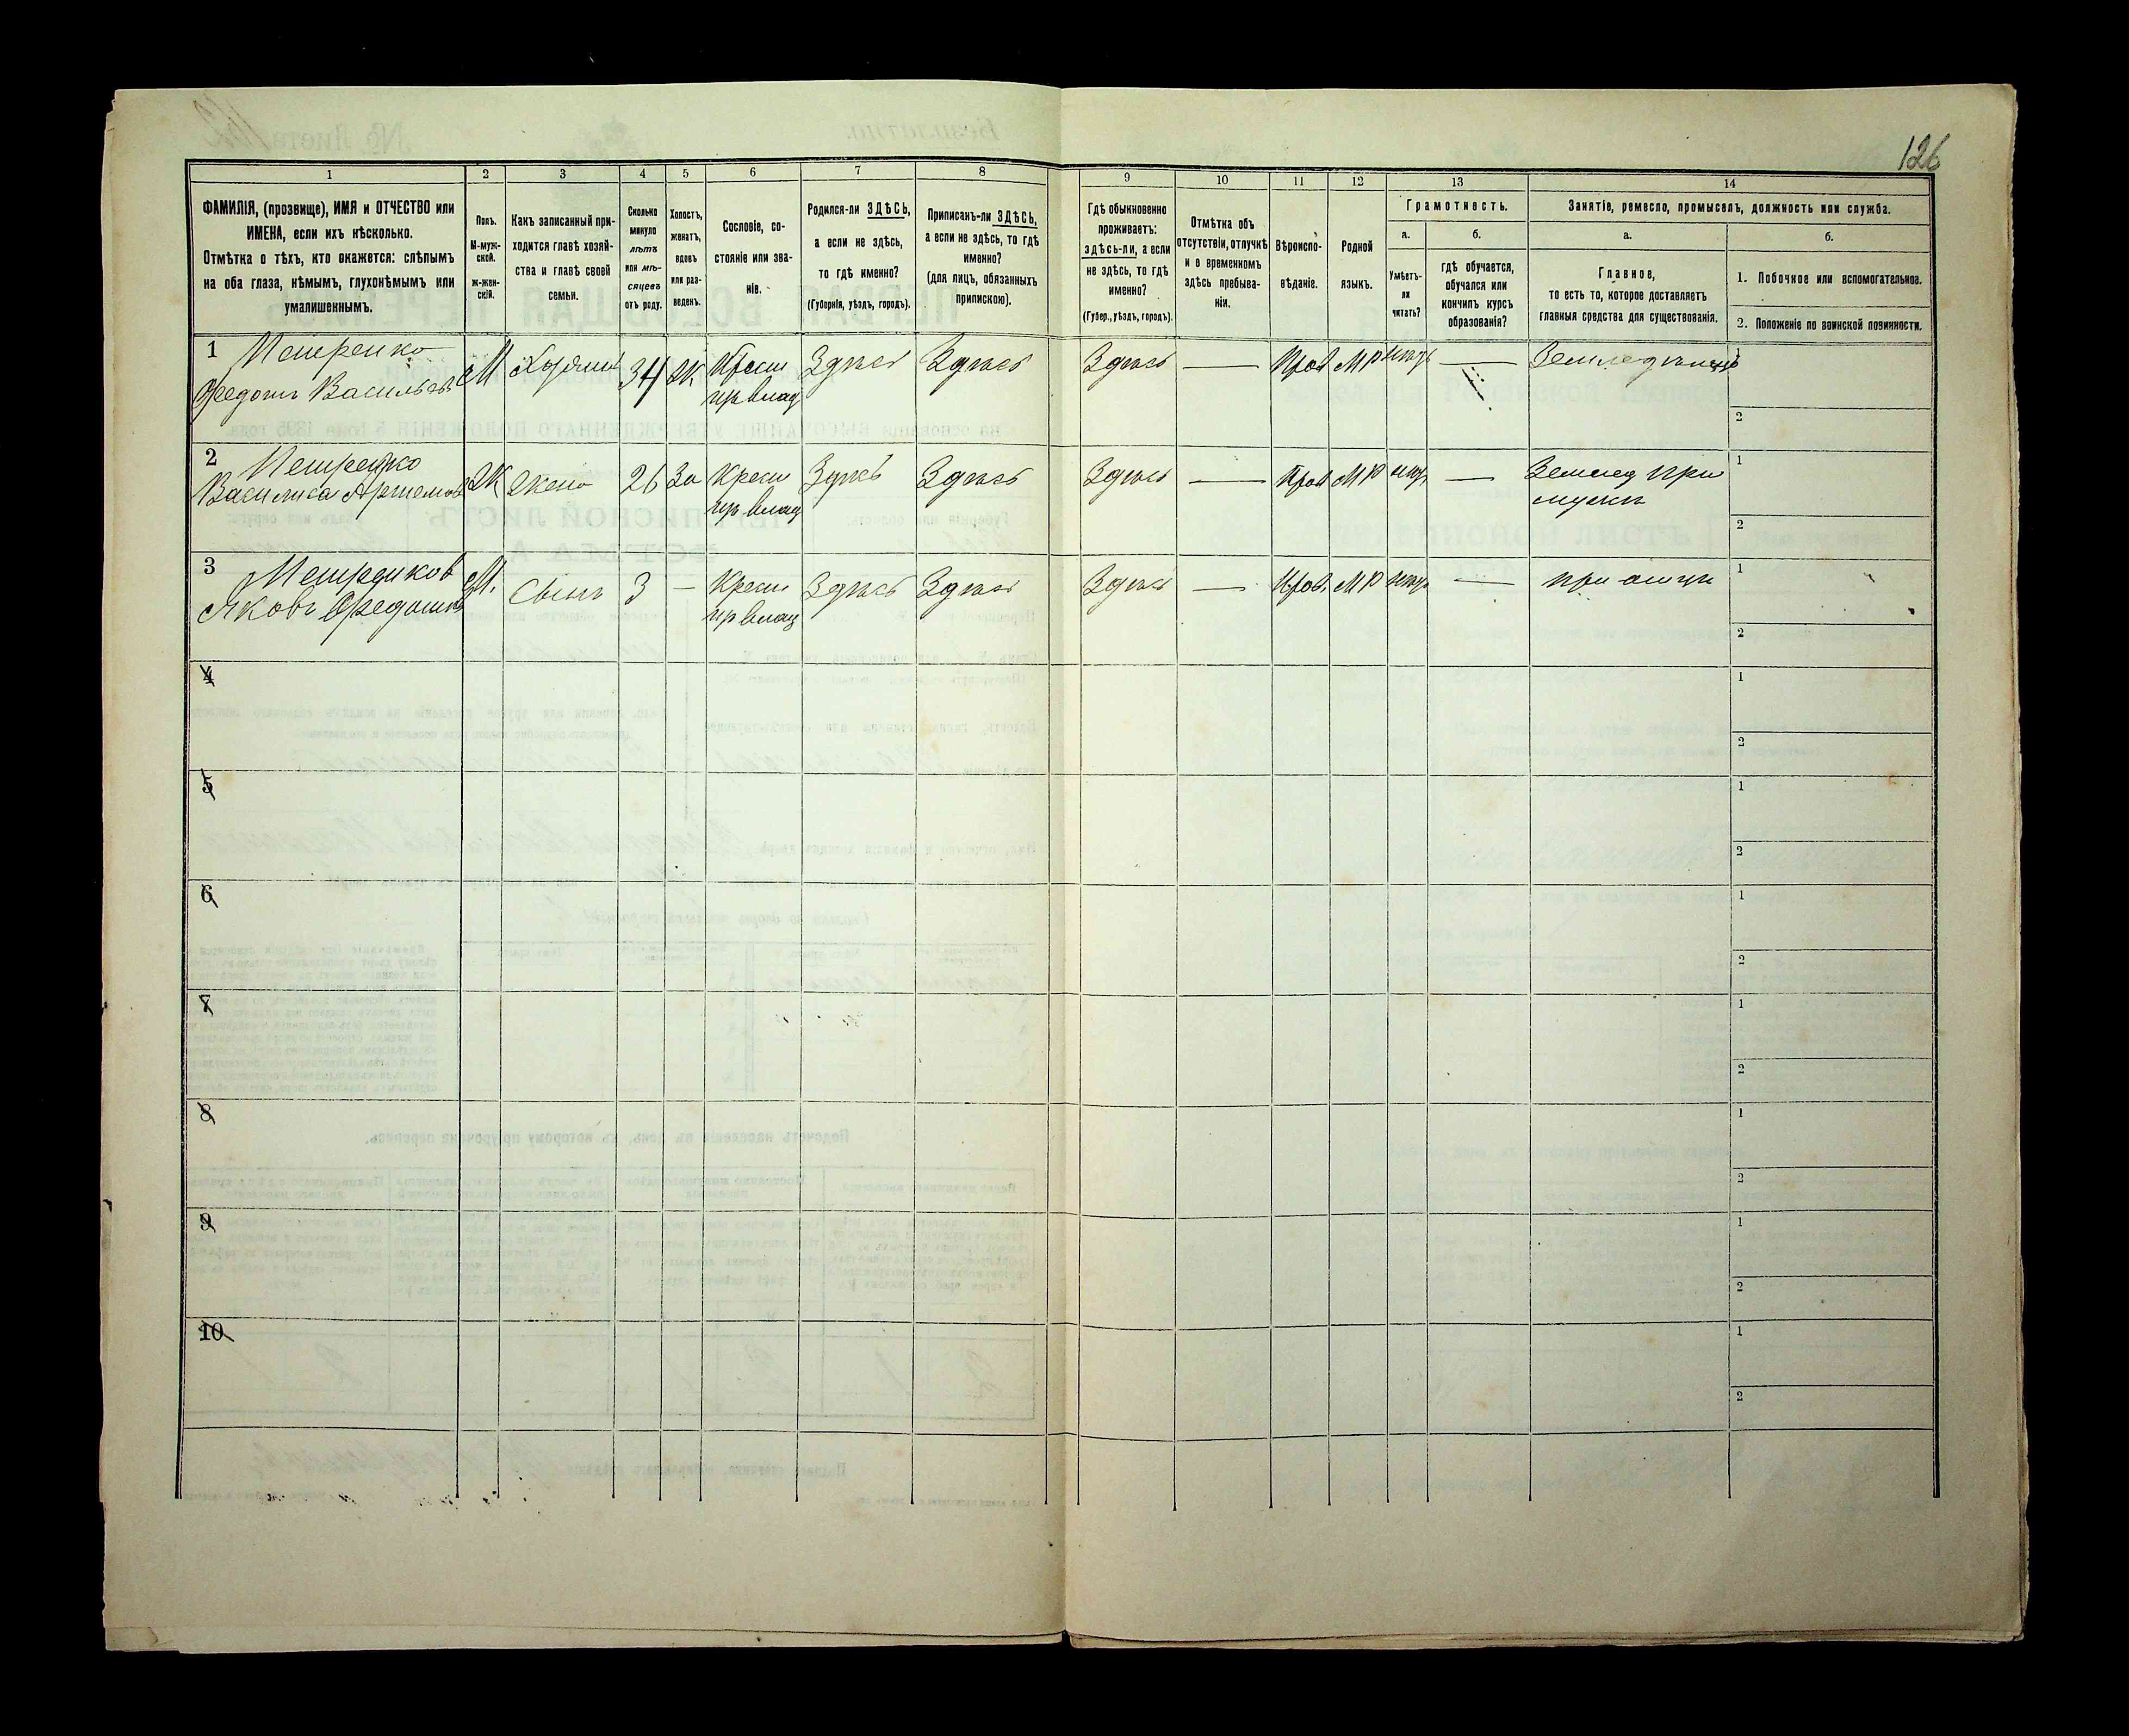 126
1
2
3
4
5
6
7
8
9
10
11
12
13
14
ФАМИЛІЯ, (прозвище), ИМЯ и ОТЧЕСТВО или
ИМЕНА, если ихъ нѣсколько.
Отмѣтка о тѣхъ, кто окажется: слѣпымъ
на оба глаза, нѣмымъ, глухонѣмымъ или
умалишеннымъ.
Полъ.
М-муж-
ской.
Ж-жен-
скій.
Какъ записанный при-
ходится главѣ хозяй-
ства и главѣ своей
семьи.
Сколько
минуло
лѣтъ
или мѣ-
сяцевъ
отъ роду.
Холостъ,
женатъ,
вдовъ
или раз-
веденъ.
Сословіе, со-
стояніе или зва-
ніе.
Родился-ли ЗДѢСЬ,
а если не здѣсь,
то гдѣ именно?
(Губернія, уѣздъ, городъ).
Приписанъ-ли ЗДѢСЬ,
а если не здѣсь, то гдѣ
именно?
(для лицъ, обязанныхъ
припискою).
Гдѣ обыкновенно
проживаетъ:
здѣсь-ли, а если
не здѣсь, то гдѣ
именно?
(Губер., уѣздъ, городъ).
Отмѣтка объ
отсутствіи, отлучкѣ
и о временномъ
здѣсь пребыва-
ніи.
Вѣроиспо-
вѣданіе.
Родной
языкъ.
Грамотность.
а.
Умѣетъ-
ли
читать?
б.
гдѣ обучается,
обучался или
кончилъ курсъ
образованія?
Занятіе, ремесло, промыселъ, должность или служба.
а.
Главное,
то есть то, которое доставляетъ
главныя средства для существованія.
б.
1. Побочное или вспомогательное.
2. Положеніе по воинской повинности.
1 Петренко
Федотъ Васильевъ
М
Хозяинъ
34
Ж
Крест
пр влад
Здѣсь
Здѣсь
Здѣсь
—
Прав
М р
нѣтъ
—
Земледѣлецъ
1
2
2 Петренко
Василиса Артемова
Ж
Жена
26
За
Крест
пр влад
Здѣсь
Здѣсь
Здѣсь
—
Прав
М р
нѣтъ
—
Землед при
мужѣ
1
2
3
Яковъ Федотовъ
М.
Сынъ
3
—
Крест
пр влад
Здѣсь
Здѣсь
Здѣсь
—
Прав.
М р
нѣтъ
—
при отцѣ
1
2
4
1
2
5
1
2
6
1
2
7
1
2
8
1
2
9
1
2
10
1
2